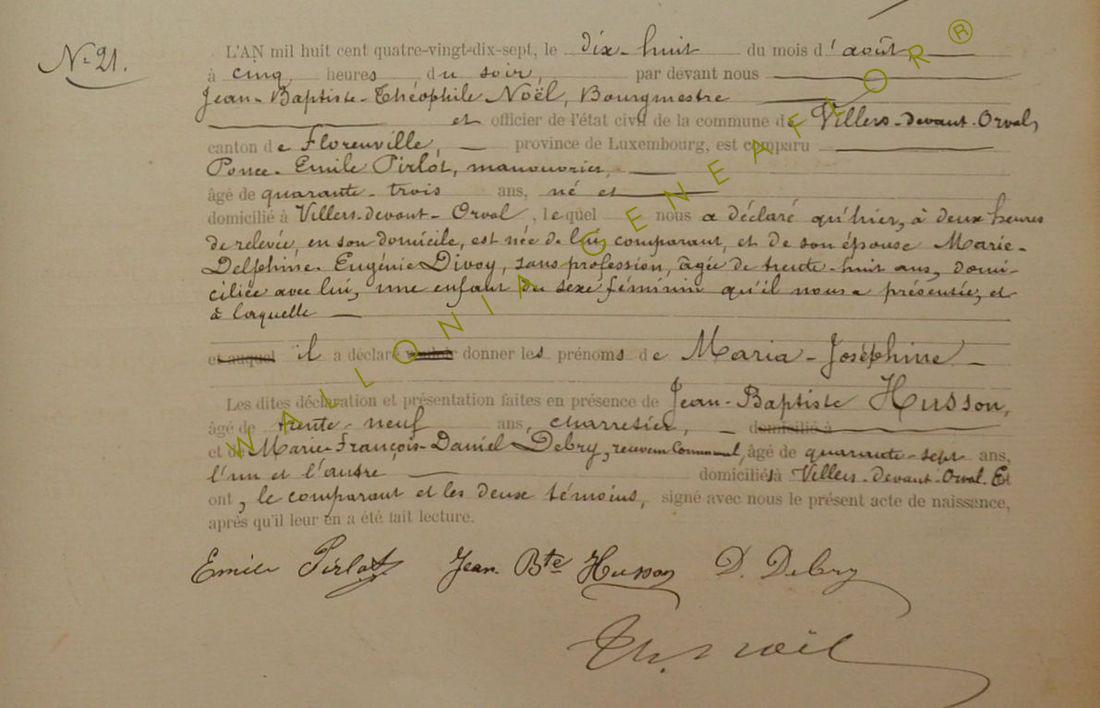 N° 21.
L'AN mil huit cent quatre-vingt-dix-sept, le dix-huit du mois d'août
à cinq heures du soir, par devant nous
Jean-Baptiste-Théophile Noël, Bourgmestre
et officier de l'état civil de la commune de Villers-devant-Orval,
canton de Florenville, province de Luxembourg, est comparu
Ponce-Emile Pirlot, manouvrier,
âgé de quarante-trois ans, né et
domicilié à Villers-devant-Orval, lequel nous a déclaré qu'hier, à deux heures
de relevée, en son domicile, est née de lui comparant, et de son épouse Marie-
Delphine-Eugénie Divoy, sans profession, âgée de trente-huit ans, domi-
ciliée avec lui, une enfant du sexe féminin qu'il nous a présentée, et
à laquelle
et auquel il a déclaré vouloir donner les prénoms de Maria-Joséphine
Les dites déclaration et présentation faites en présence de Jean-Baptiste Husson,
âgé de trente-neuf ans, charretier, domicilié à
et de Marie-François-Daniel Debry, receveur communal, âgé de quarante-sept ans,
l'un et l'autre domiciliés à Villers-devant-Orval. Et
ont, le comparant et les deux témoins, signé avec nous le présent acte de naissance,
après qu'il leur en a été fait lecture.
Emile Pirlot Jean Bte Husson D. Debry
Th. Noël
WALLONIA GENEAFLOR ®